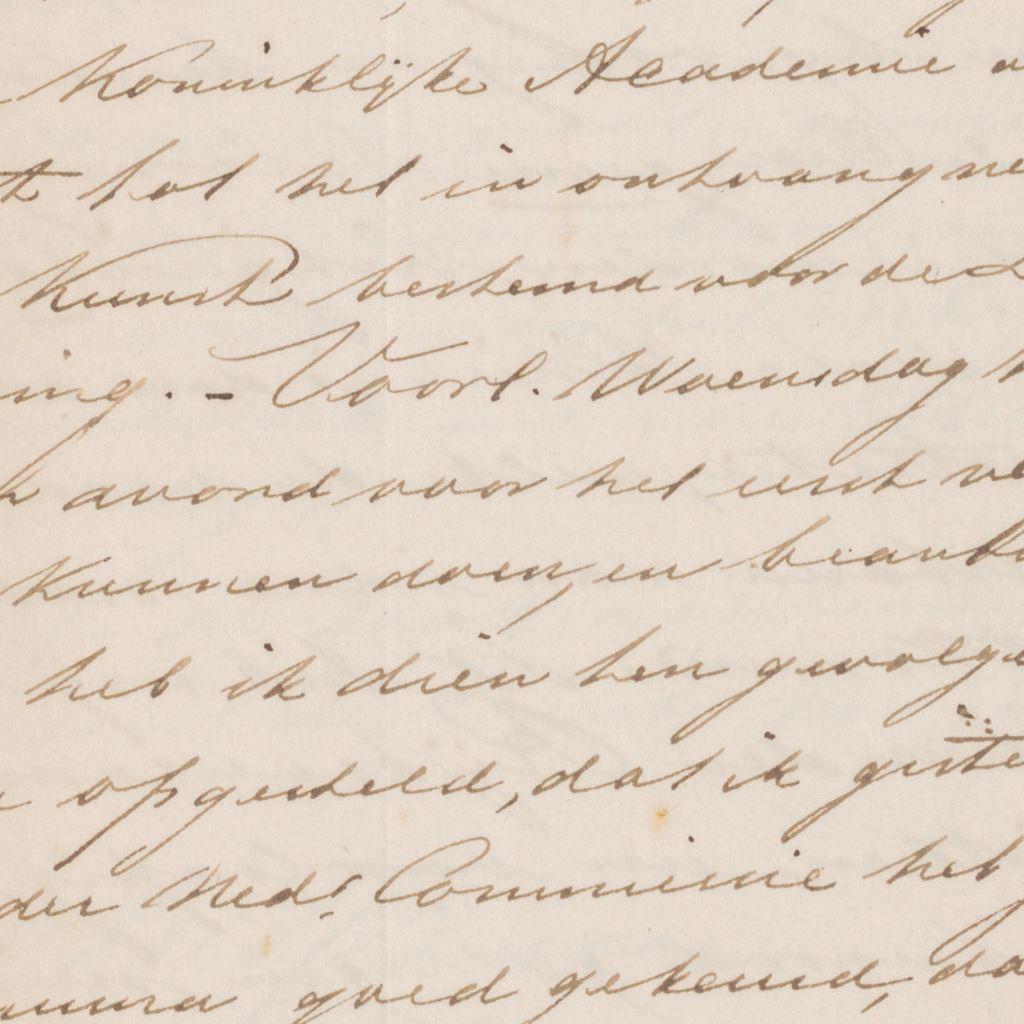 Koninklijke Academie v
t tot het in ontvang ne
Kunst bestemd voor de
ing. - Voorl. Woensdag
avond voor het eerst ve
Kunnen doen, en beantw
heb ik dien ten gevolge
opgesteld, dat ik giste
der Nedr. Commissie heb
goed gekeurd, da